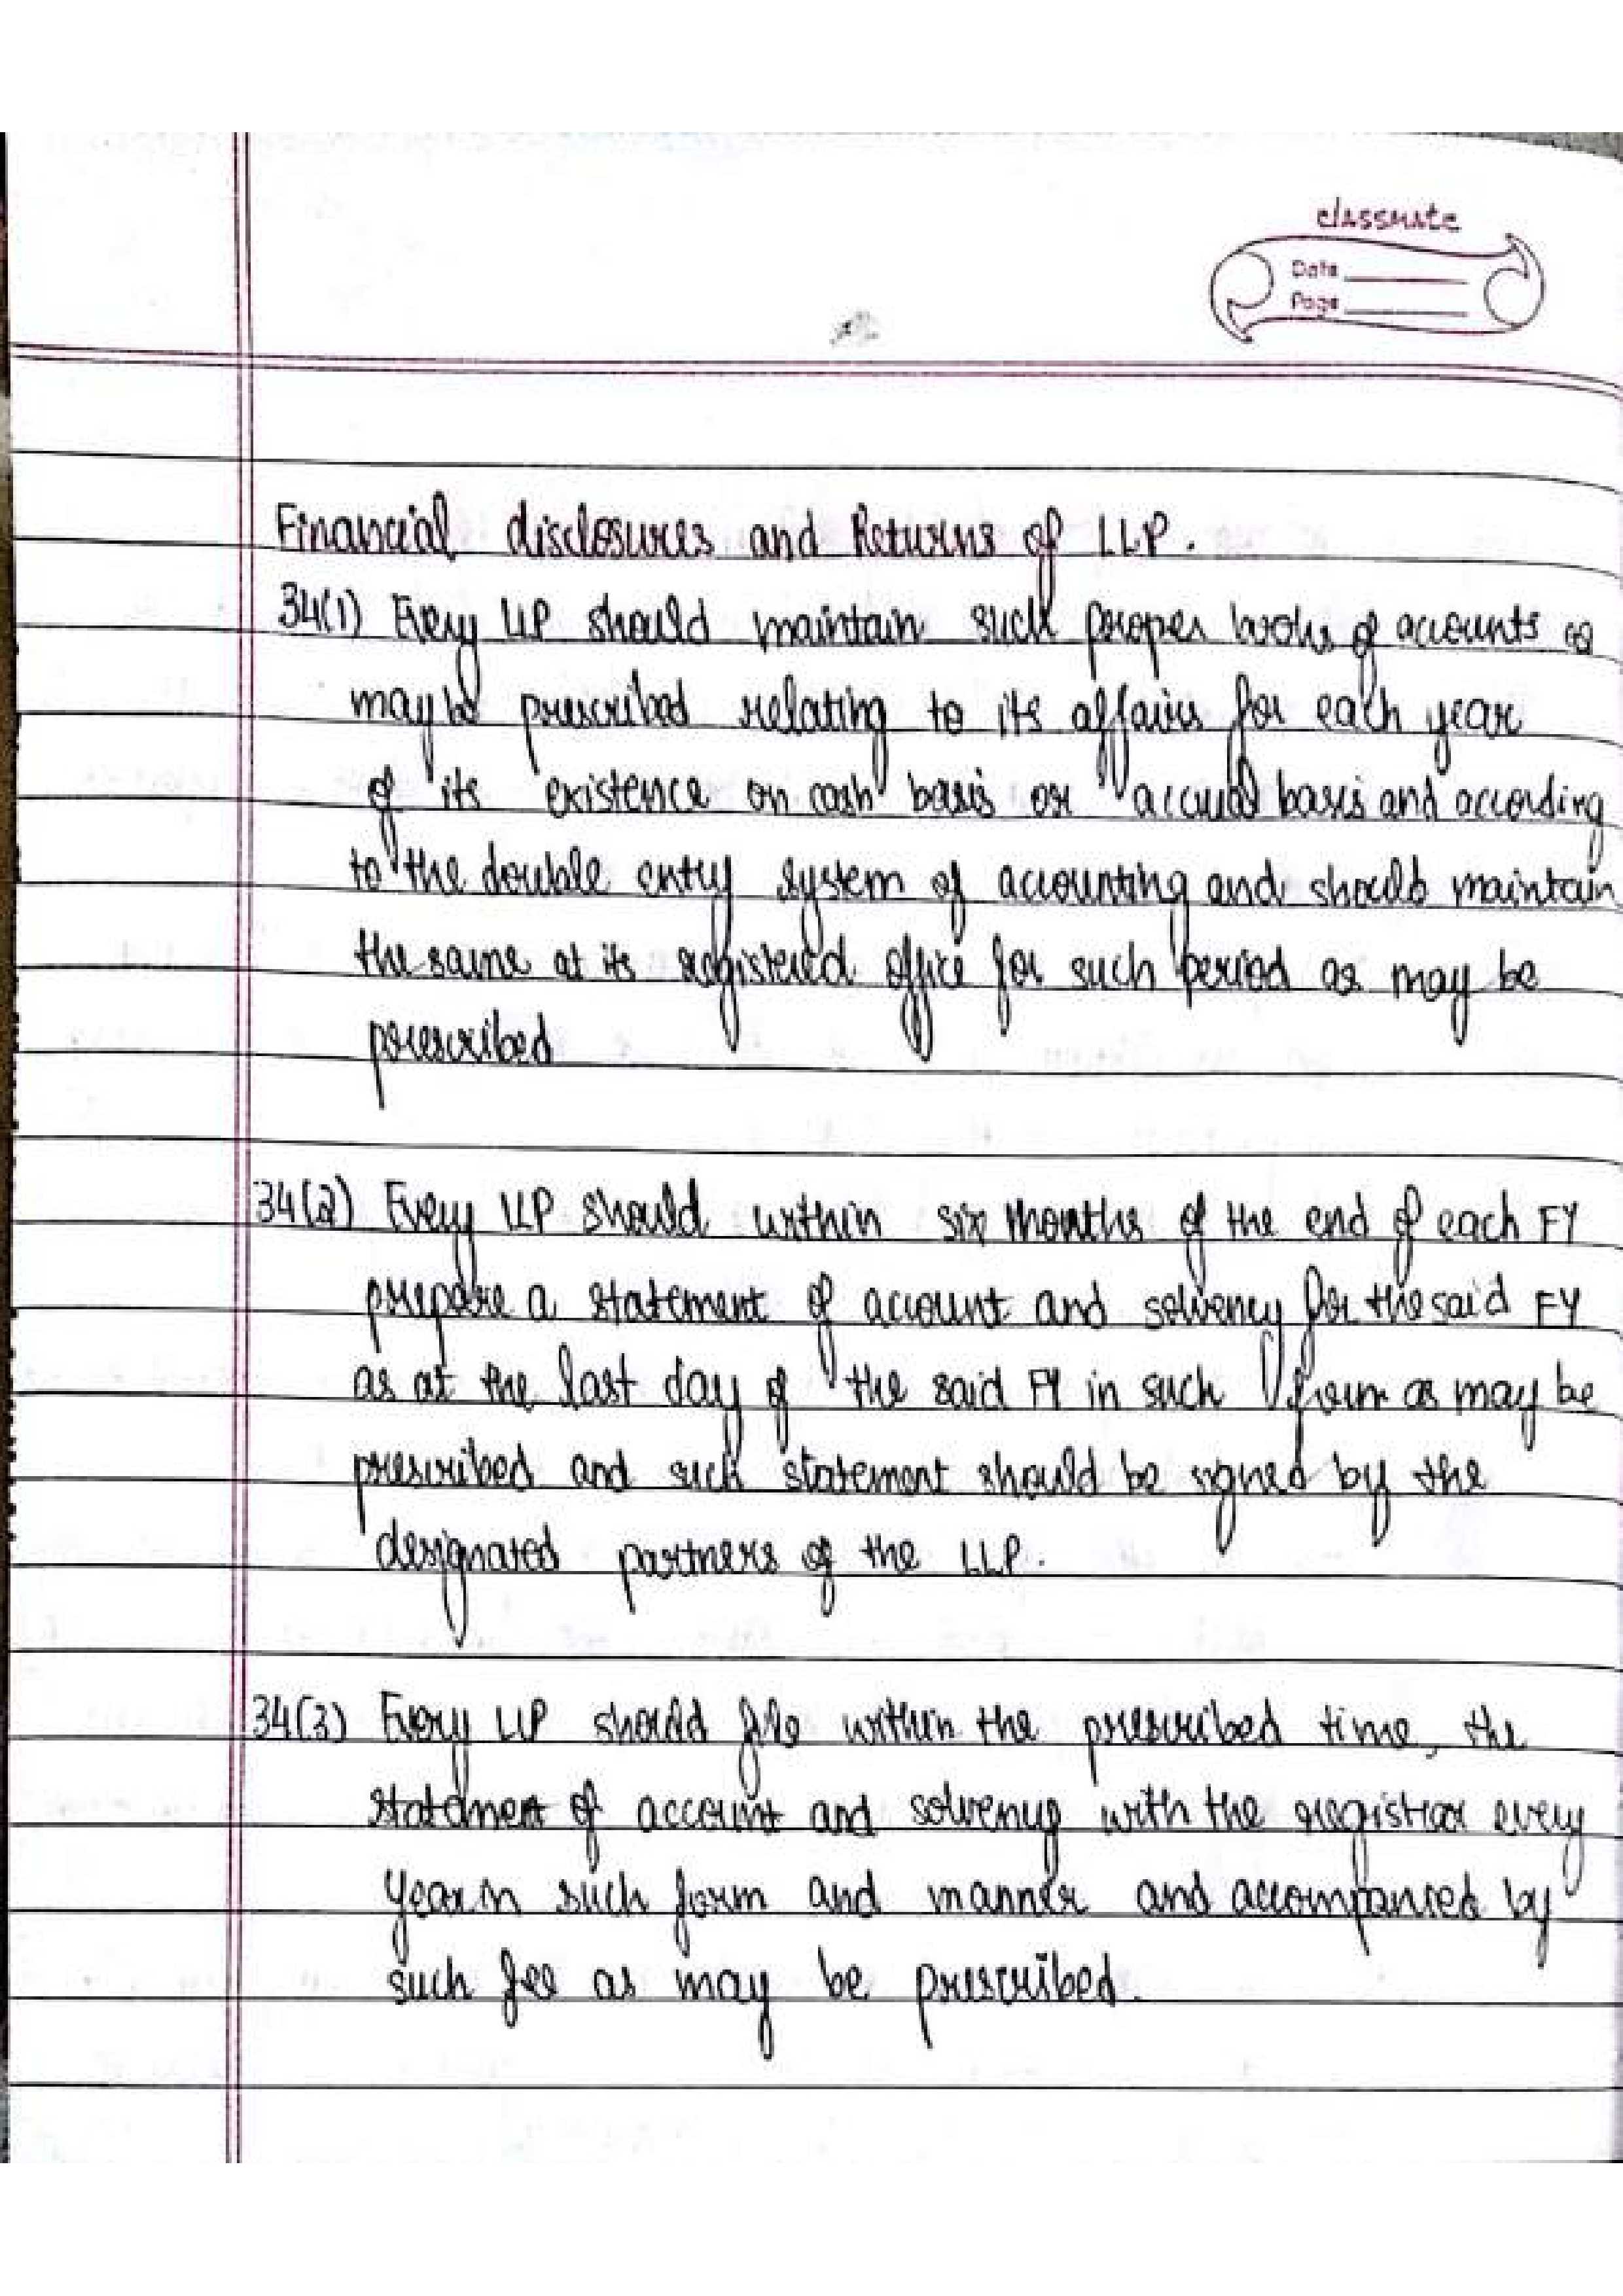 classmate
Date
Page
Financial disclosures and Returns of LLP.
34(1) Every LLP should maintain such proper books of accounts as
may be prescribed relating to its affairs for each year
of its existence on cash basis or accural basis and according
to the double entry system of accounting and should maintain
the same at its registered office for such period as may be
prescribed
34(2) Every LLP should within six months of the end of each FY
prepare a statement of account and solvency for the said FY
as at the last day of the said FY in such form as may be
prescribed and such statement should be signed by the
designated partners of the LLP.
34(3) Every LLP should file within the prescribed time, the
statement of account and solvency with the registrar every
year in such form and manner and accompanied by
such fee as may be prescribed.